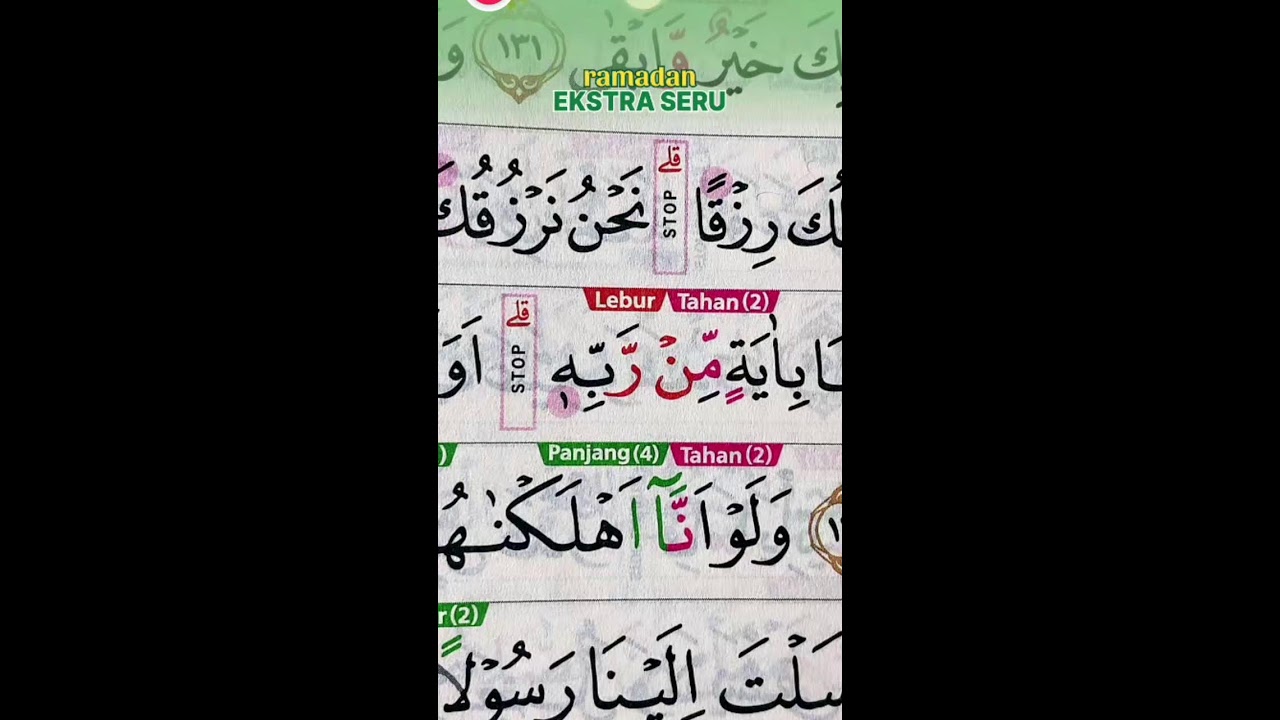 خَيْرٌ وَّاَبْقٰى ١٣١
ramadan
EKSTRA SERU
رِزْقًا ۗ قلے STOP نَحْنُ نَرْزُقُكَ
Lebur Tahan (2)
بِاٰيَةٍ مِّنْ رَّبِّهٖ ١ قلے STOP
Panjang (4) Tahan (2)
وَلَوْ اَنَّآ اَهْلَكْنٰهُ
(2)
اِلَيْنَا رَسُوْلًا